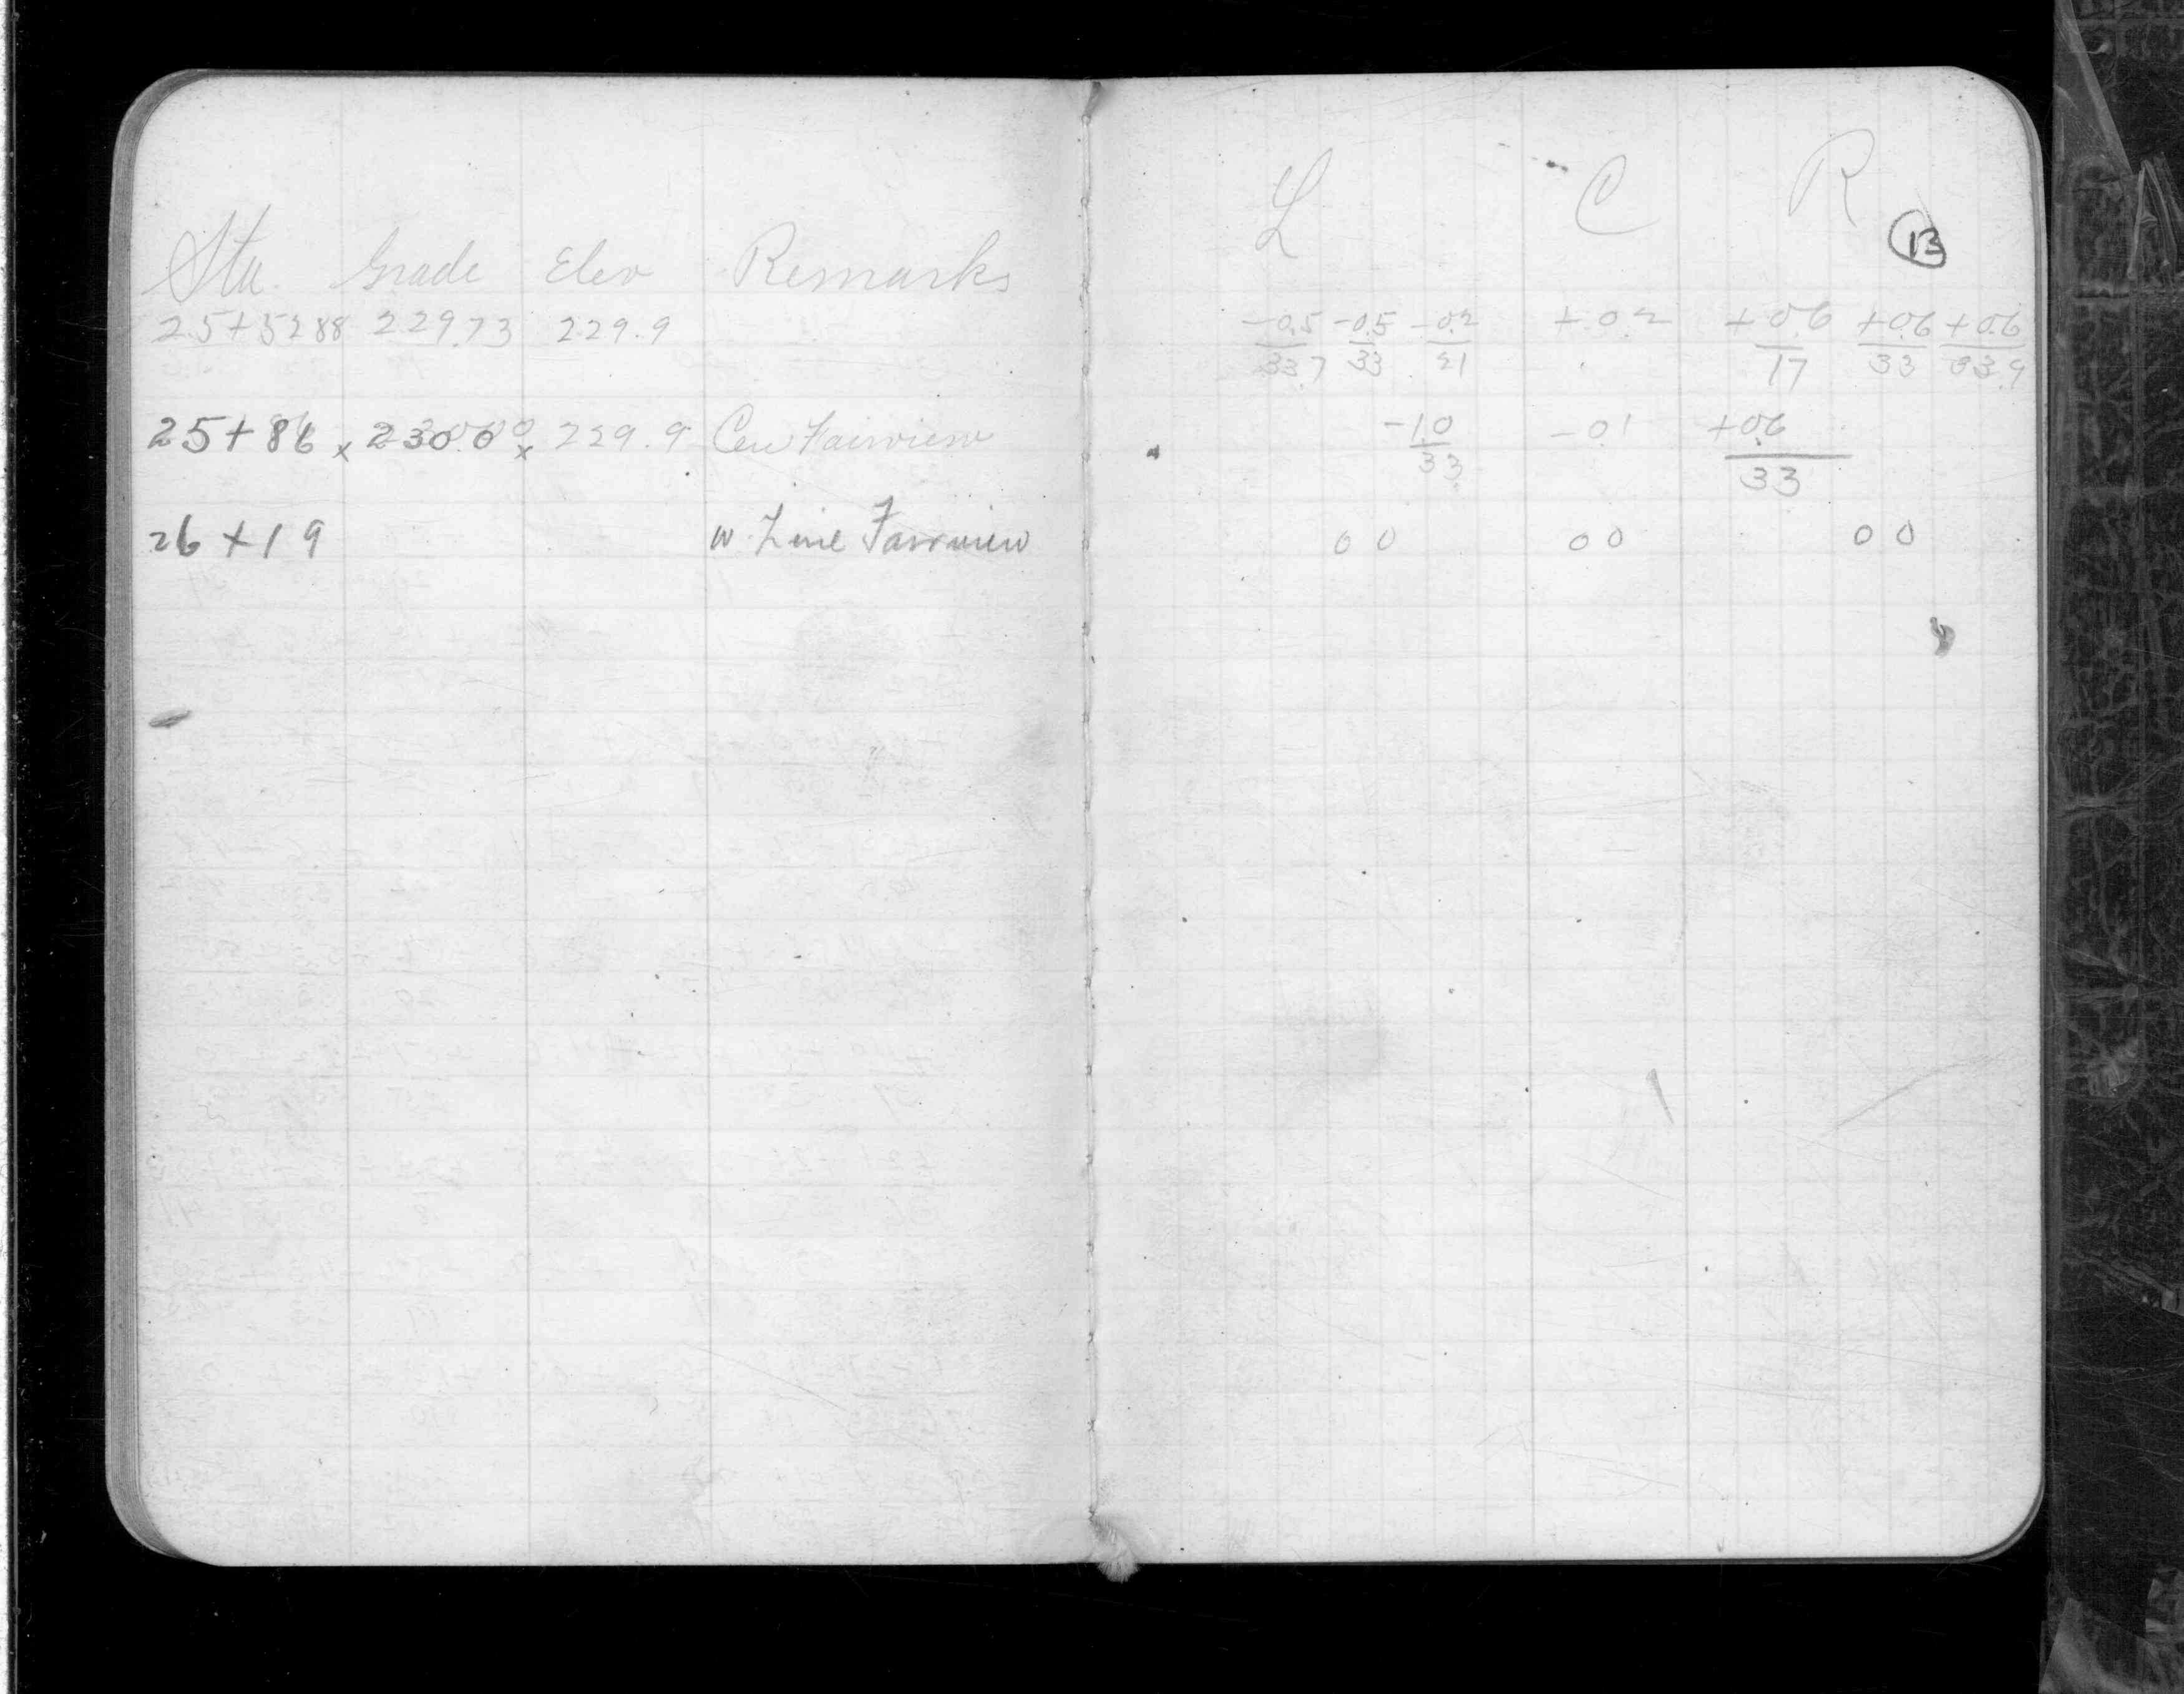 Sta. Grade Elev Remarks
25+5288 229.73 229.9
25+86 x 230.00 x 229.9 Cen Fairview
26+19 W. Line Fairview
L C R
13
-0.5 -0.5 -0.2 +0.2 +0.6 +0.6 +0.6
33.7 33 21 17 33 33.9
-1.0 -0.1 +0.6
33 33
00 00 00